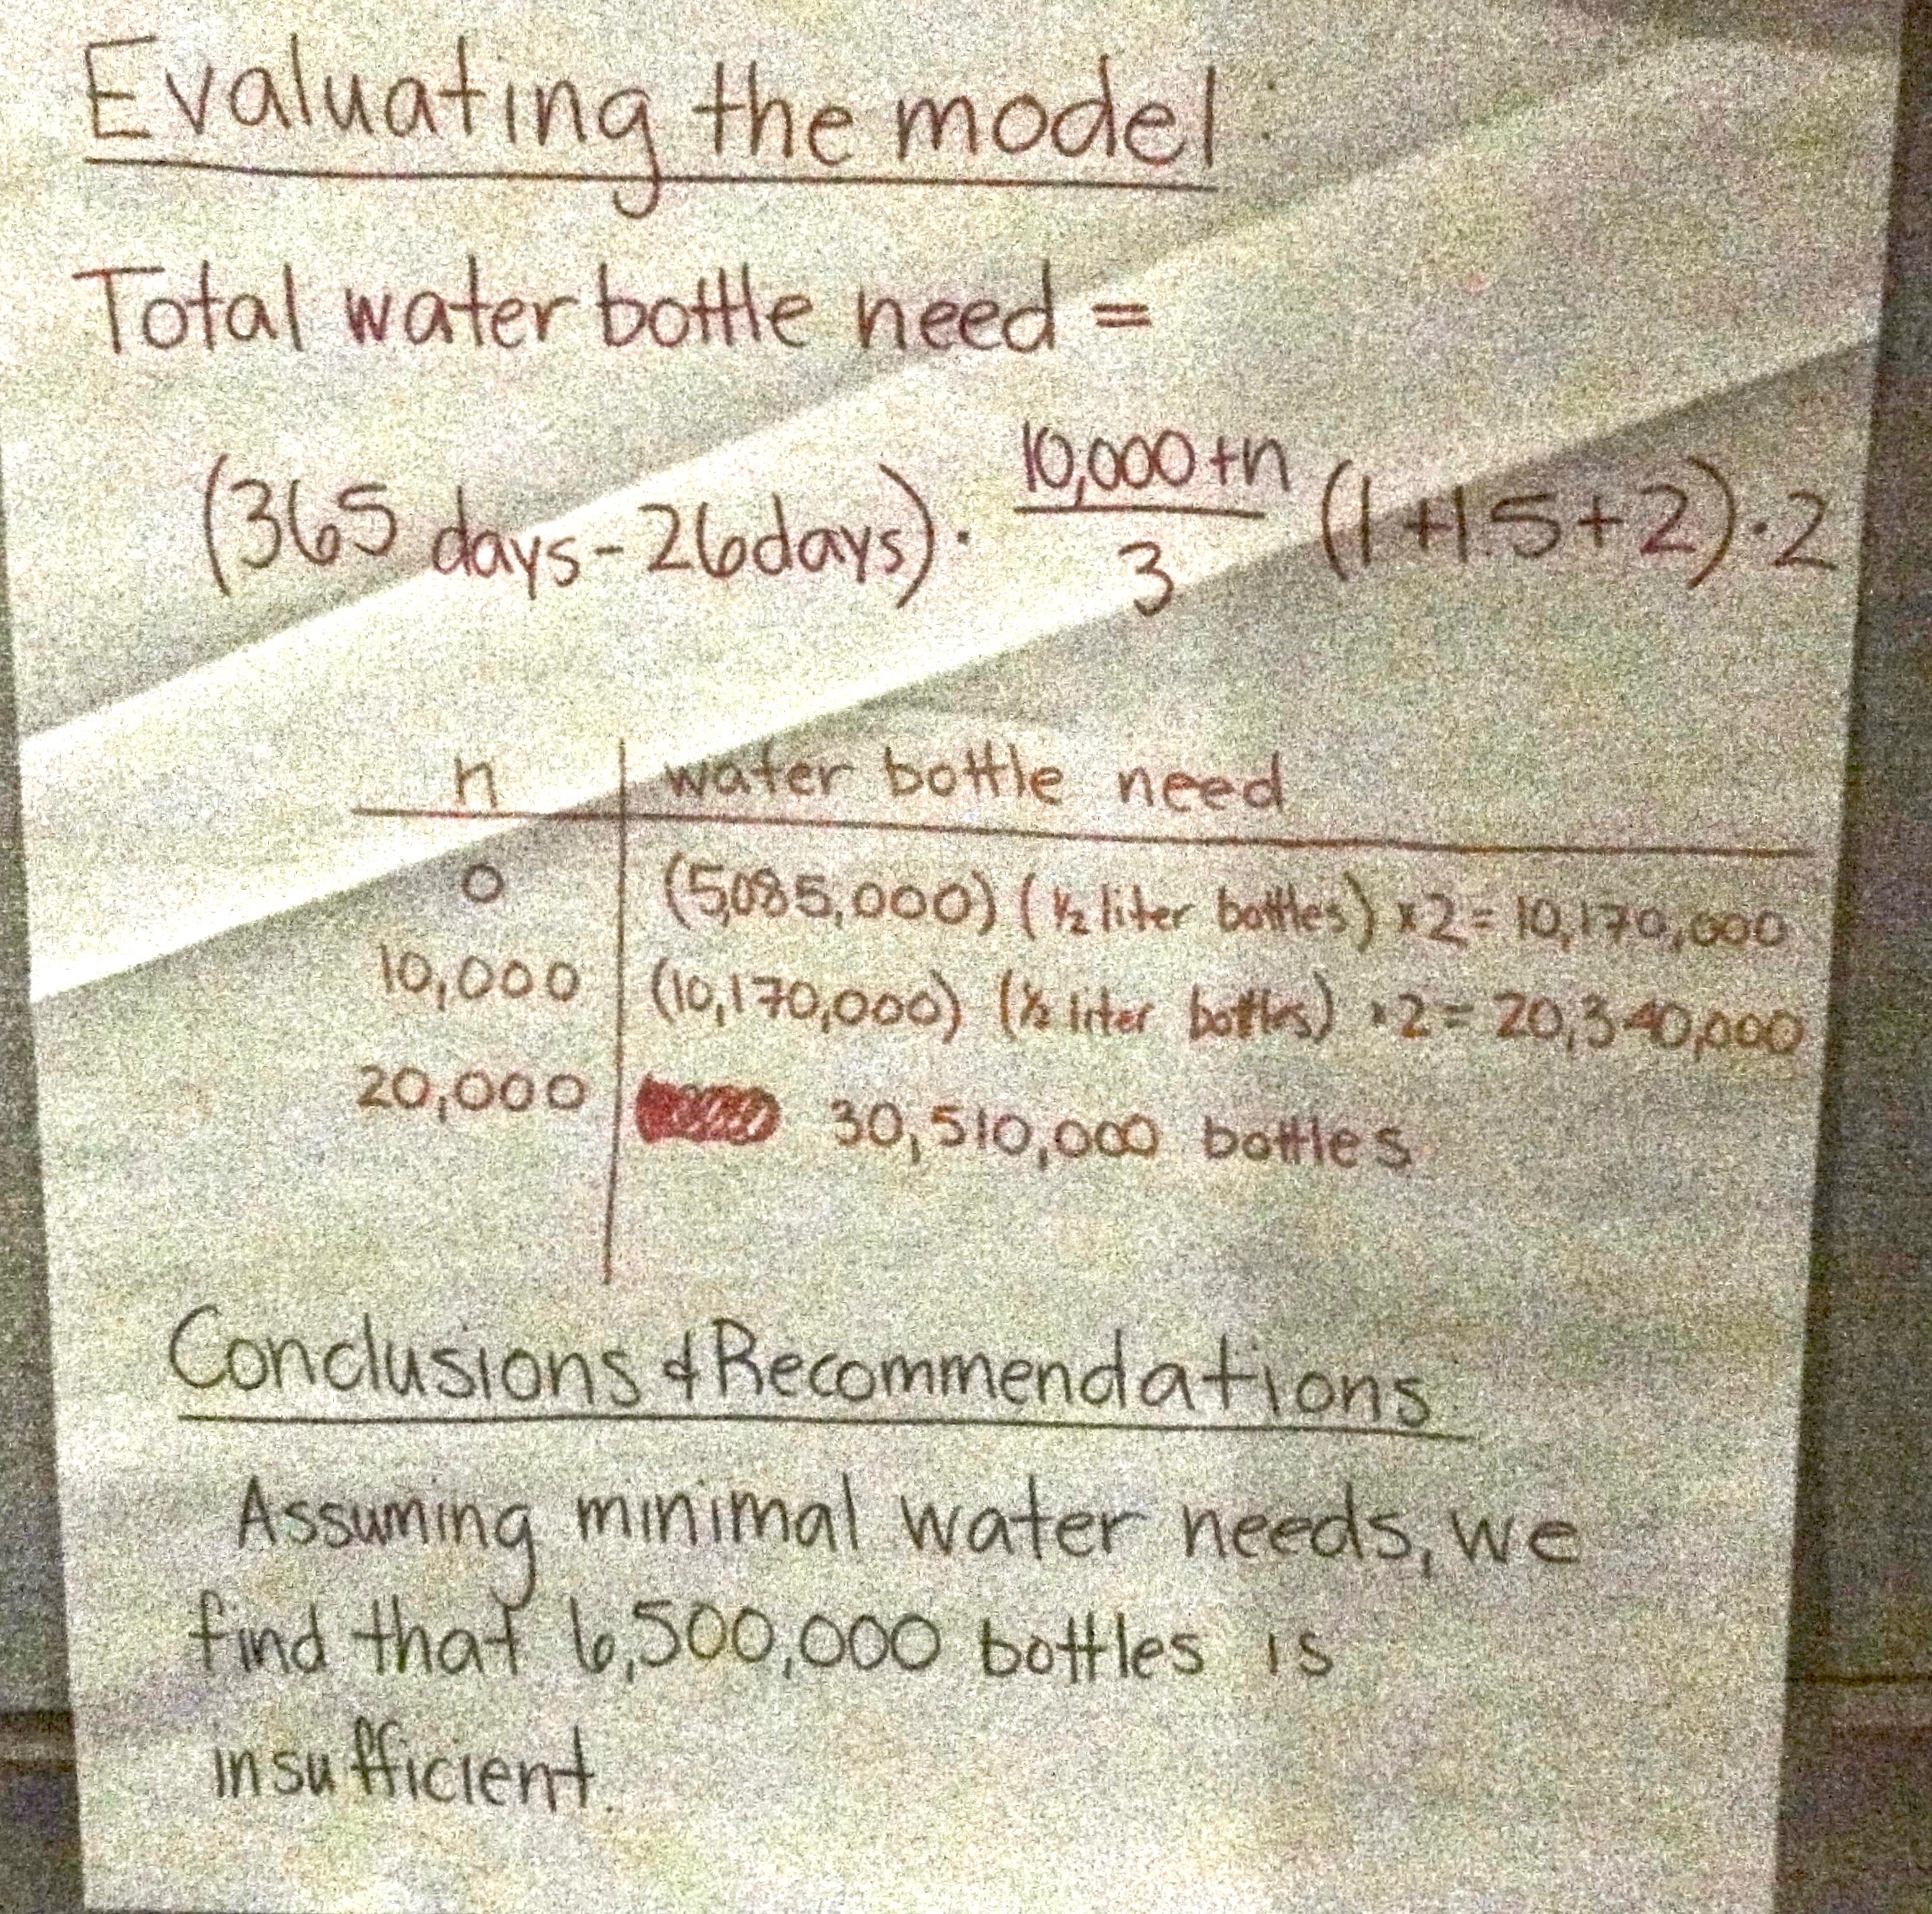 Evaluating the model:
Total water bottle need =
(365 days - 26 days) · 10,000 + n / 3 (1 + 1.5 + 2) · 2
n water bottle need
0 (5,085,000) (1/2 liter bottles) × 2 = 10,170,000
10,000 (10,170,000) (1/2 liter bottles) × 2 = 20,340,000
20,000 30,510,000 bottles
Conclusions & Recommendations
Assuming minimal water needs, we
find that 6,500,000 bottles is
insufficient.